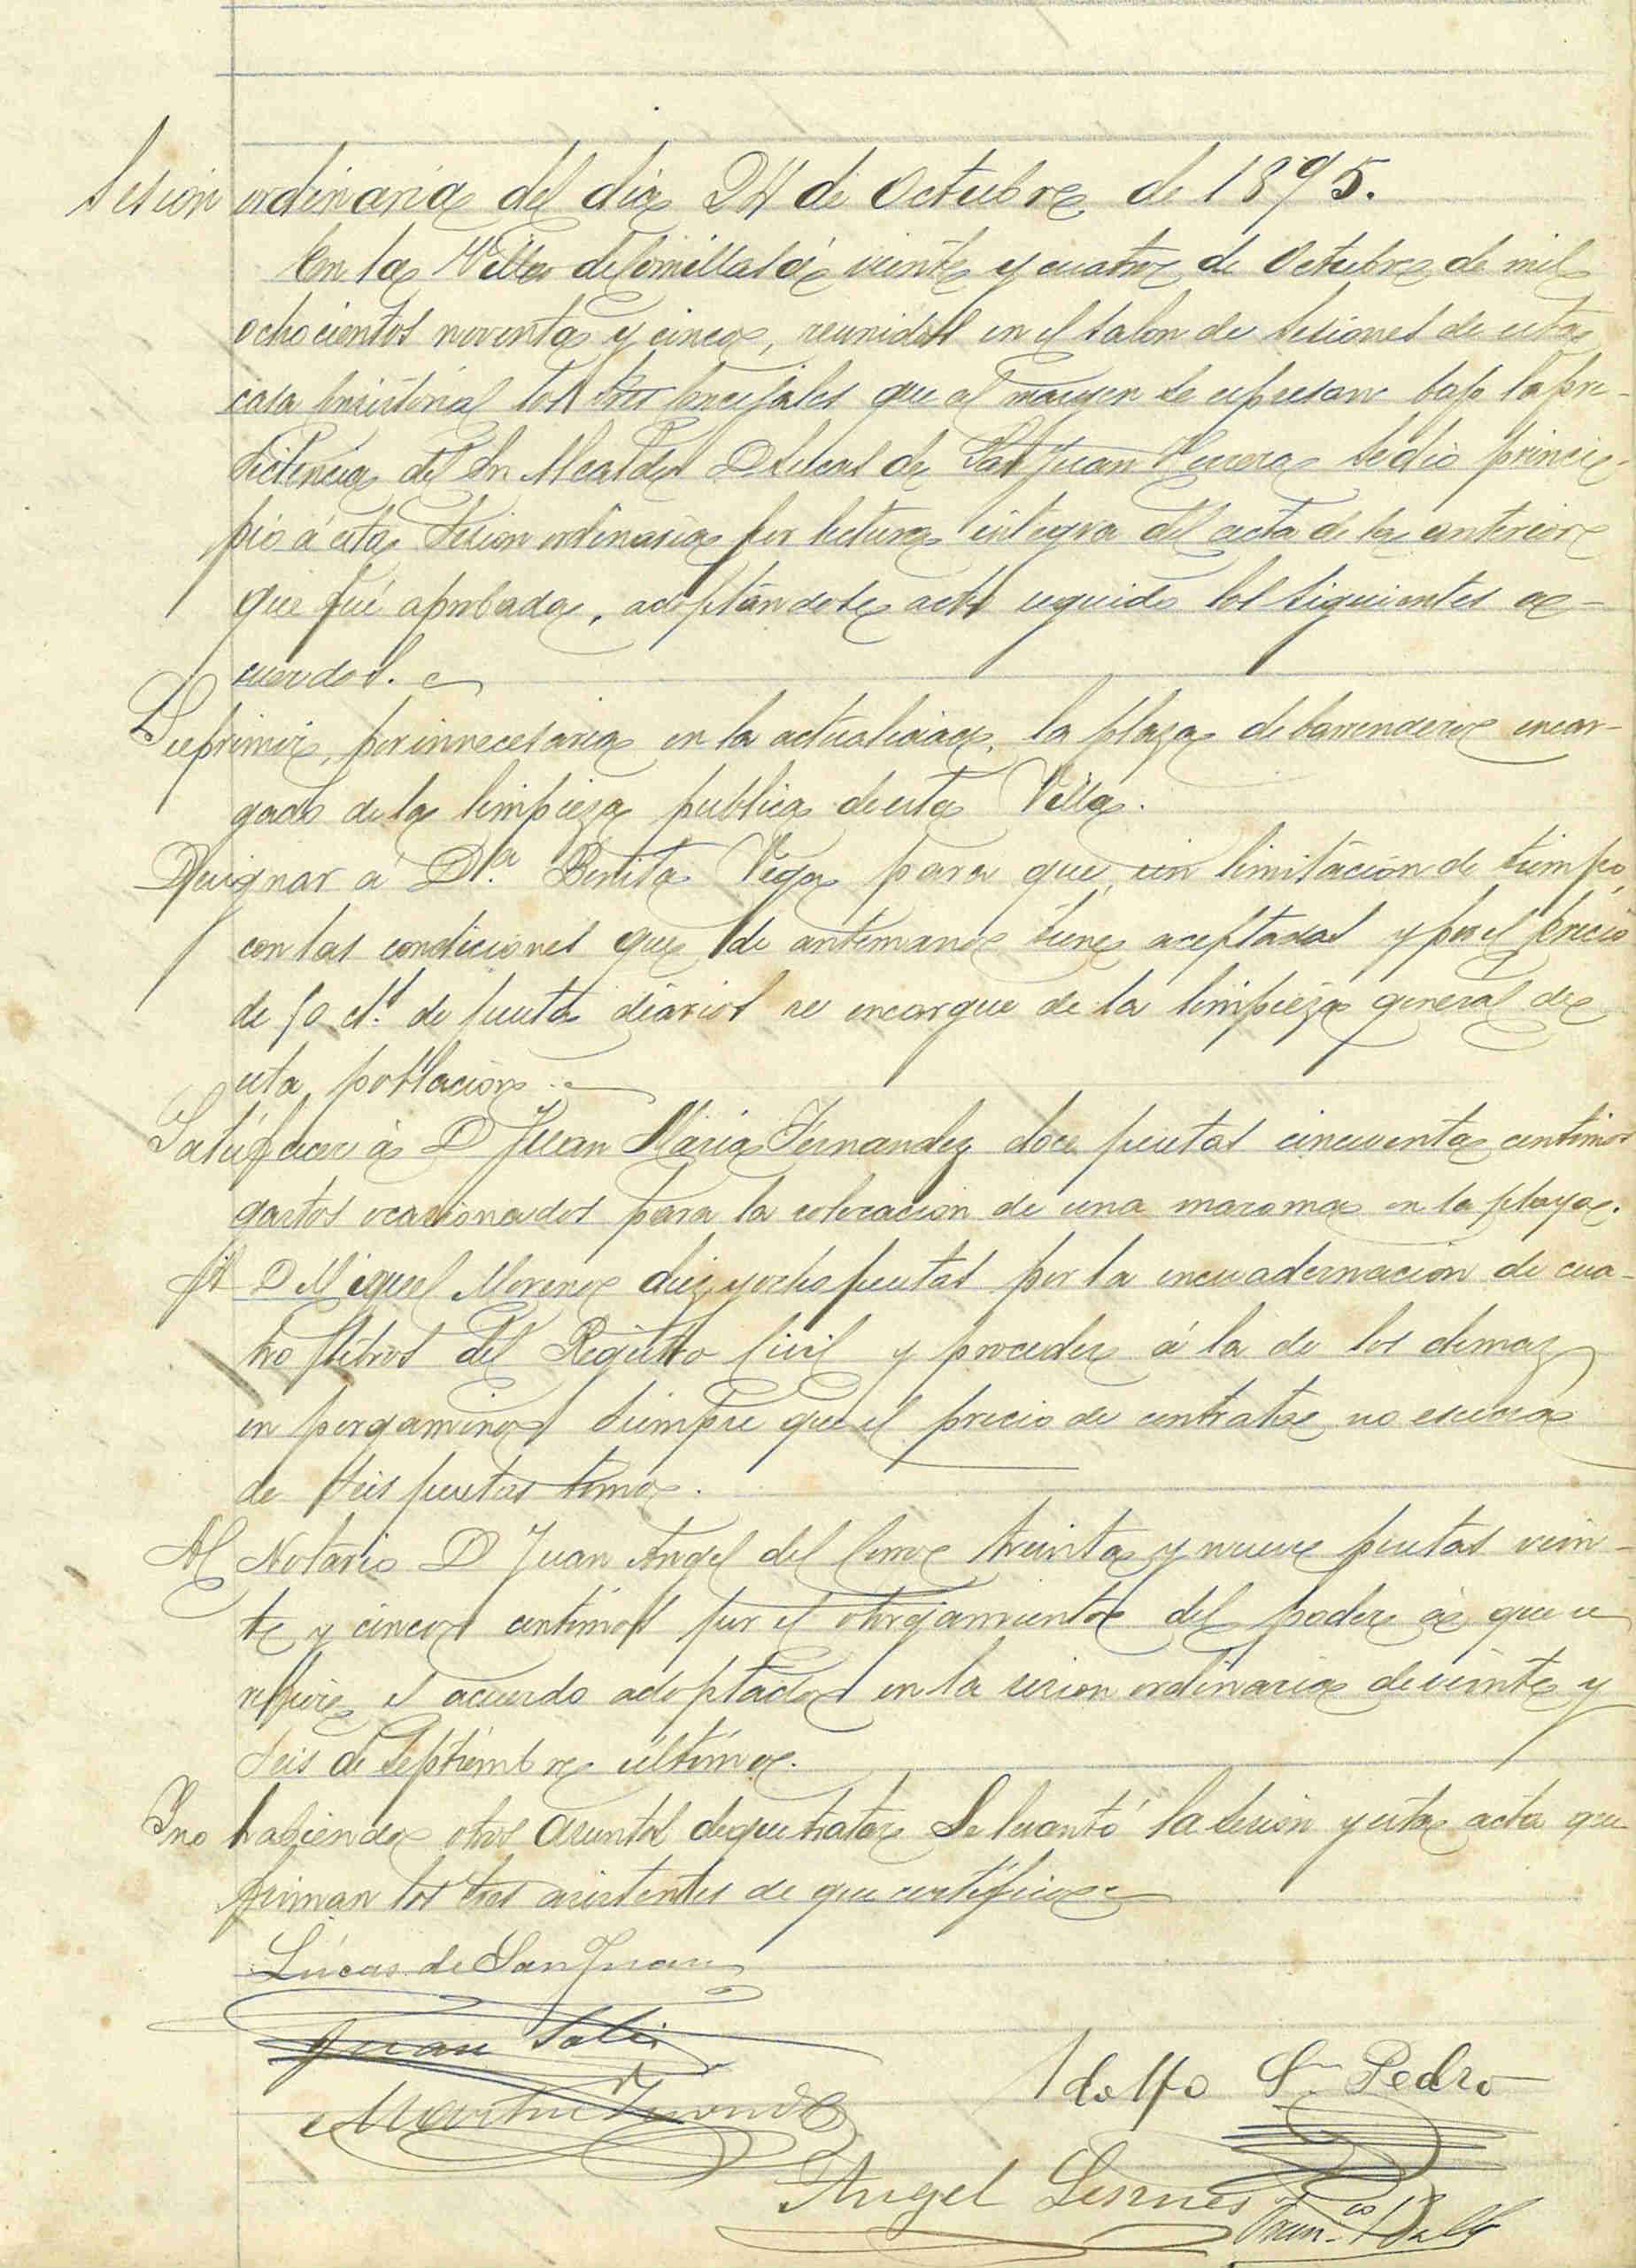 Sesion ordinaria del dia 24 de Octubre de 1895.
En la Villa de Comillas á veinte y cuatro de Octubre de mil
ochocientos noventa y cinco, reunidos en el salon de sesiones de esta
casa Consistorial los Sres Concejales que al margen se expresan bajo la pre-
sidencia del Sr Alcalde D Lucas de San Juan se dió princi-
pio á esta sesion ordinaria por lectura integra del acta de la anterior
que fué aprobada, adoptándose acto seguido los siguientes a-
cuerdos.
Suprimir, por innecesaria en la actualidad, la plaza de barrendero encar-
gado de la limpieza publica de esta Villa.
Designar á D.ª Benita Vega para que, sin limitación de tiempo,
con las condiciones que de antemano tiene aceptadas y por el precio
de 50 cts. de peseta diarios se encargue de la limpieza general de
esta población.
Satisfacer á D Juan Maria Fernandez doce pesetas cincuenta centimos
gastos ocasionados para la colocacion de una maroma en la playa.
A D Miguel Moreno diez y ocho pesetas por la encuadernacion de cua-
tro libros del Registro Civil y proceder á la de los demas
en pergamino siempre que el precio de contrata no esceda
de seis pesetas tomo.
Al Notario D Juan Angel del Corro treinta y nueve pesetas vein-
te y cinco centimos por el otorgamiento del poder á que se
refiere el acuerdo adoptado en la sesion ordinaria de veinte y
seis de Septiembre último.
Y no habiendo otros asuntos de que tratar se levantó la sesión y esta acta que
firman los Sres asistentes de que certifico
Lúcas de San Juan
Juan
Adolfo Sn Pedro
Martin
Angel
Franco